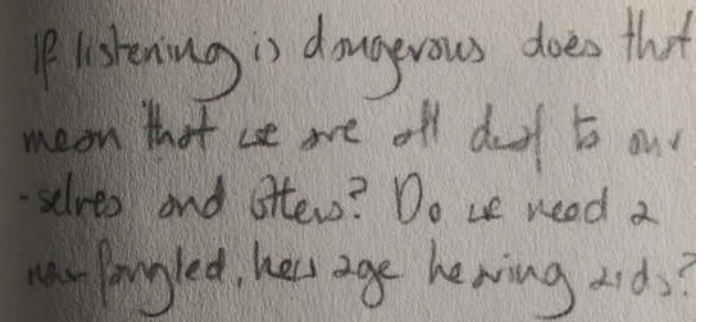 If listening is dangerous does that
mean that we are all deaf to our
-selves and others? Do we need a
new fangled, new age hearing aids?